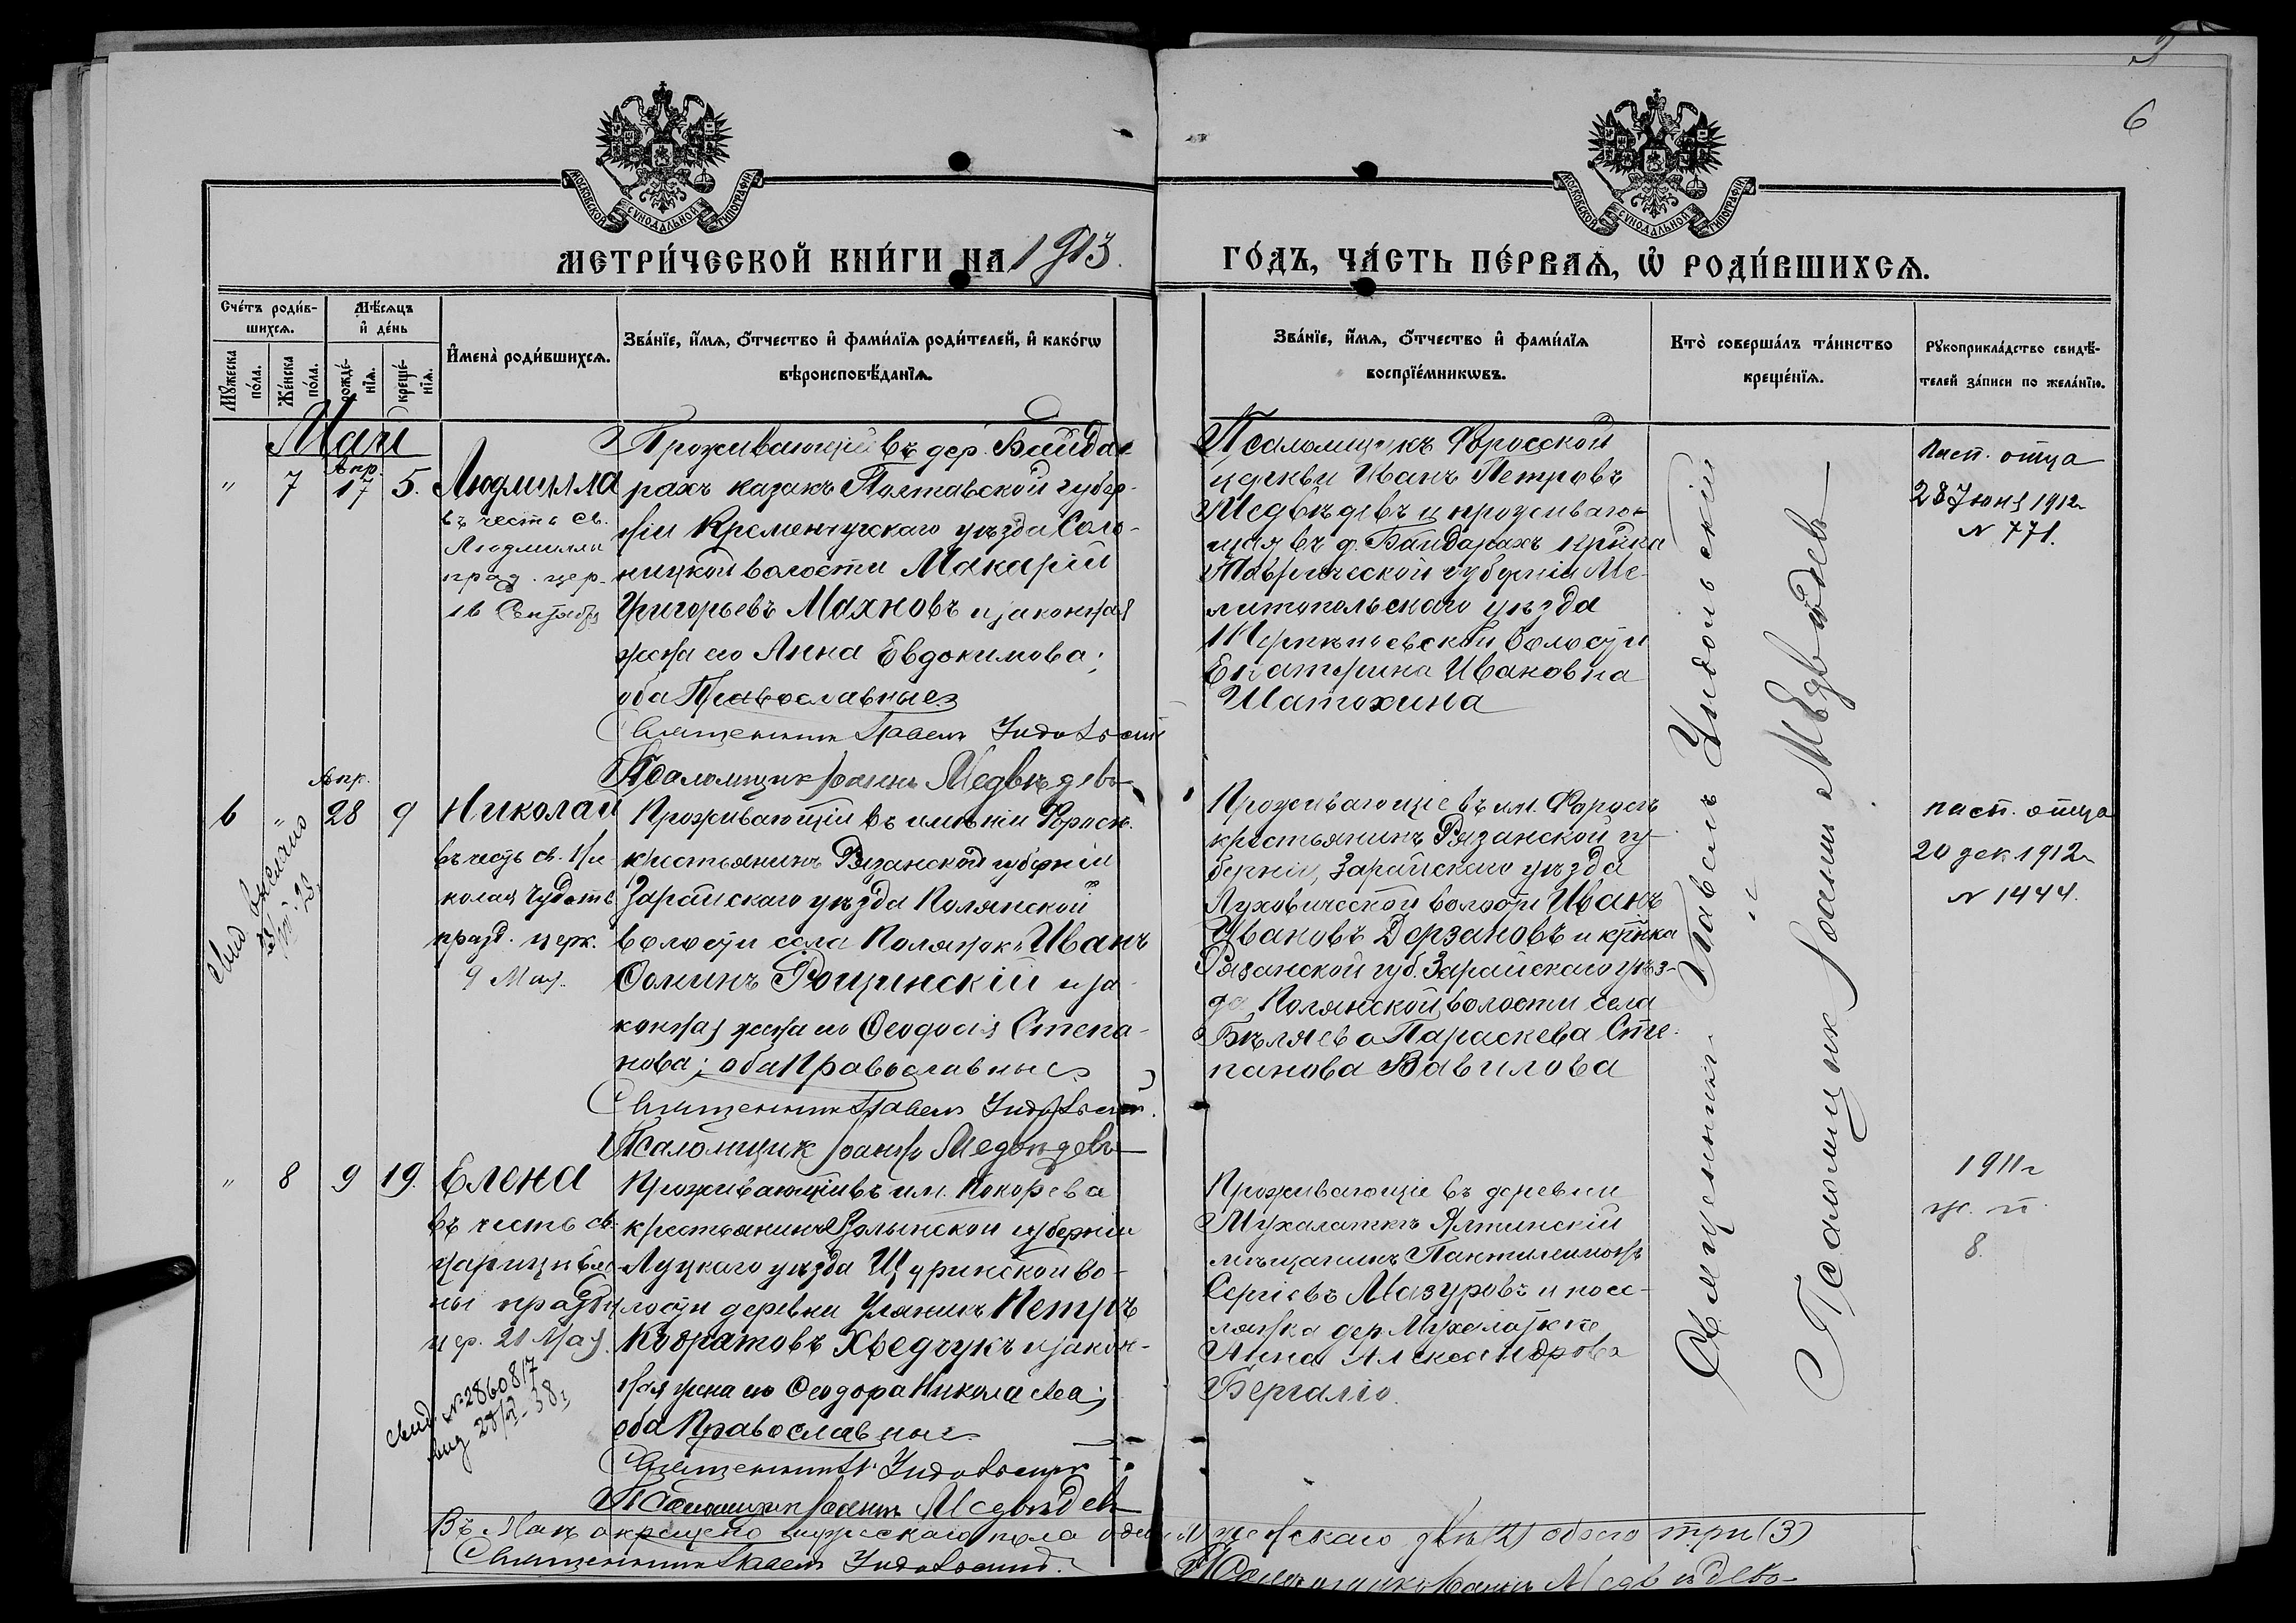 3
6
МОСКОВСКОЙ СѴНОДАЛЬНОЙ ТИПОГРАФІИ
МОСКОВСКОЙ СѴНОДАЛЬНОЙ ТИПОГРАФІИ
МЕТРИ́ЧЕСКОЙ КНИ́ГИ НА 1913.
ГО́ДЪ, ЧА́СТЬ ПЕ́РВАѦ, Ѡ҆ РОДИ́ВШИХСѦ.
Сче́тъ роди́в-
шихсѧ.
Мѣ́сѧцъ
и҆ де́нь
Мꙋ́жеска
по́ла.
Же́нска
по́ла.
рожде́-
нїѧ.
креще́-
нїѧ.
И҆мена̀ роди́вшихсѧ.
Зва́нїе, и҆́мѧ, ѻ҆́тчество и҆ фами́лїѧ роди́телей, и҆ како́гѡ
вѣроисповѣ́данїѧ.
Зва́нїе, и҆́мѧ, ѻ҆́тчество и҆ фами́лїѧ
воспрїе́мникѡвъ.
Кто̀ соверша́лъ та́инство
креще́нїѧ.
Рꙋкоприкла́дство свидѣ́-
телей за́писи по жела́нїю.
Май
"
7
Апр.
17
5.
Людмилла
въ честь св.
Людмилли
празд. цер.
16 Сентября
Проживающій въ дер. Байда-
рахъ казакъ Полтавской губер-
ніи Кременчугскаго уѣзда Соло-
ницкой волости Макарій
Григорьевъ Махновъ и законная
жена его Анна Евдокимова;
оба Православные
Священникъ Павелъ Индольскій
Псаломщик Іоаннъ Медвѣдевъ
Псаломщикъ Форосской
церкви Иванъ Петровъ
Медвѣдевъ и проживаю-
щая въ д. Байдарахъ кр-ка
Таврической губерніи Ме-
литопольскаго уѣзда
волости
Екатерина Ивановна
Шатохина
Пасп. отца
28 Іюня 1912 г.
№ 771.
6
"
Апр.
28
9
Николай
въ честь св. Ни-
колая Чудотв
празд. церк.
9 Мая.
Проживающій въ имѣніи Форосъ
крестьянинъ Рязанской губерніи
Зарайскаго уѣзда Полянской
волости села Полянокъ Иванъ
Ѳоминъ Рощинскій и за-
конная жена его Ѳеодосія Степа-
нова; оба Православные
Священникъ Павелъ Индольскій.
Псаломщик Іоаннъ Медвѣдевъ
Проживающіе въ им. Форосъ
крестьянинъ Рязанской гу-
берніи, Зарайскаго уѣзда
Луховической волости Иванъ
Ивановъ Дерзановъ и кр-нка
Рязанской губ. Зарайскаго уѣз-
да Полянской волости села
Бѣляево Параскева Сте-
панова Вавилова
пасп. отца
20 дек. 1912 г.
№ 1444.
Свид. выслано
"
8
9
19.
Елена
въ честь св.
царицы Еле-
ны празд.
цер. 21 Мая.
Проживающій въ им. Кокорева
крестьянинъ Волынской губерніи
Луцкаго уѣзда Щуринской во-
лости деревни Уляникъ Петръ
Кодратовъ Хведчукъ и закон-
ная жена его Ѳеодора Николаева;
оба Православные
Священникъ П. Индольскій
Псаломщикъ Іоаннъ Медвѣдевъ
Проживающіе въ деревни
Мухалаткѣ Ялтинскій
мѣщанинъ Пантилимонъ
Сергіевъ Мазуровъ и посе-
лянка дер. Мухалатки
Анна Александрова
1911 г.
8.
Свид. № 2860817
выд 28/VI-38 г
Священникъ Павелъ Индольскій
и
Псаломщик Іоаннъ Медвѣдевъ
Въ Маѣ окрещено мужескаго пола одинъ женскаго двѣ (2) обоего три (3)
Священникъ Павелъ Индольскій.
Псаломщикъ Іоаннъ Медвѣдевъ